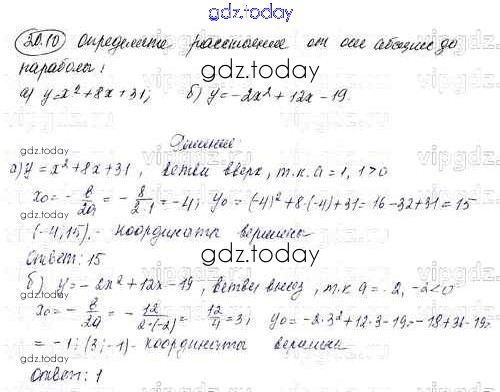 gdz.today
30.10 Определите расстояние от оси абсцисс до
параболы:
gdz.today
а) y=x²+8x+31; б) y=-2x²+12x-19.
gdz.today
Решение:
а) y=x²+8x+31, ветви вверх, т.к. a=1, 1>0
x₀=-в/2a=-8/2·1=-4; y₀=(-4)²+8·(-4)+31=16-32+31=15
(-4;15).- координаты вершины
gdz.today
Ответ: 15
б) y=-2x²+12x-19, ветви вниз, т.к. a=-2, -2<0
x₀=-в/2a=-12/2·(-2)=12/4=3; y₀=-2·3²+12·3-19=-18+36-19=
gdz.today
=-1; (3;-1)- координаты вершины
Ответ: 1
gdz.today